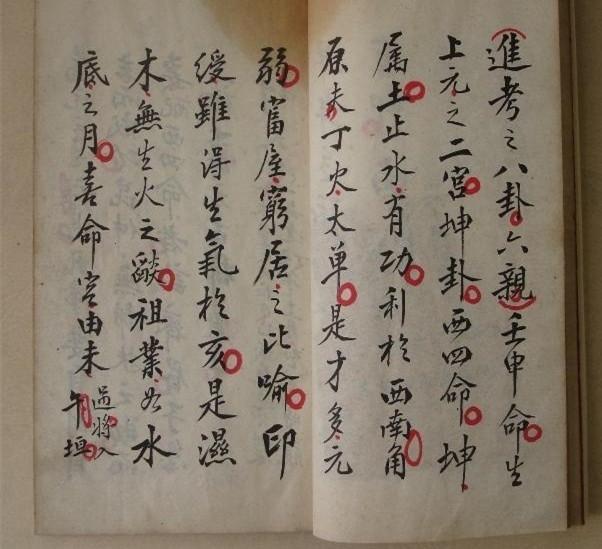 進考之八卦六親壬申命生
上元之二宮坤卦西四命坤
属土止水有功利於西南角
原夫丁火太单是才多元
弱富屋窮居之比喻印
绶雖得生氣於亥是濕
木無生火之燄祖業如水
底之月喜命宮由未過將入午垣